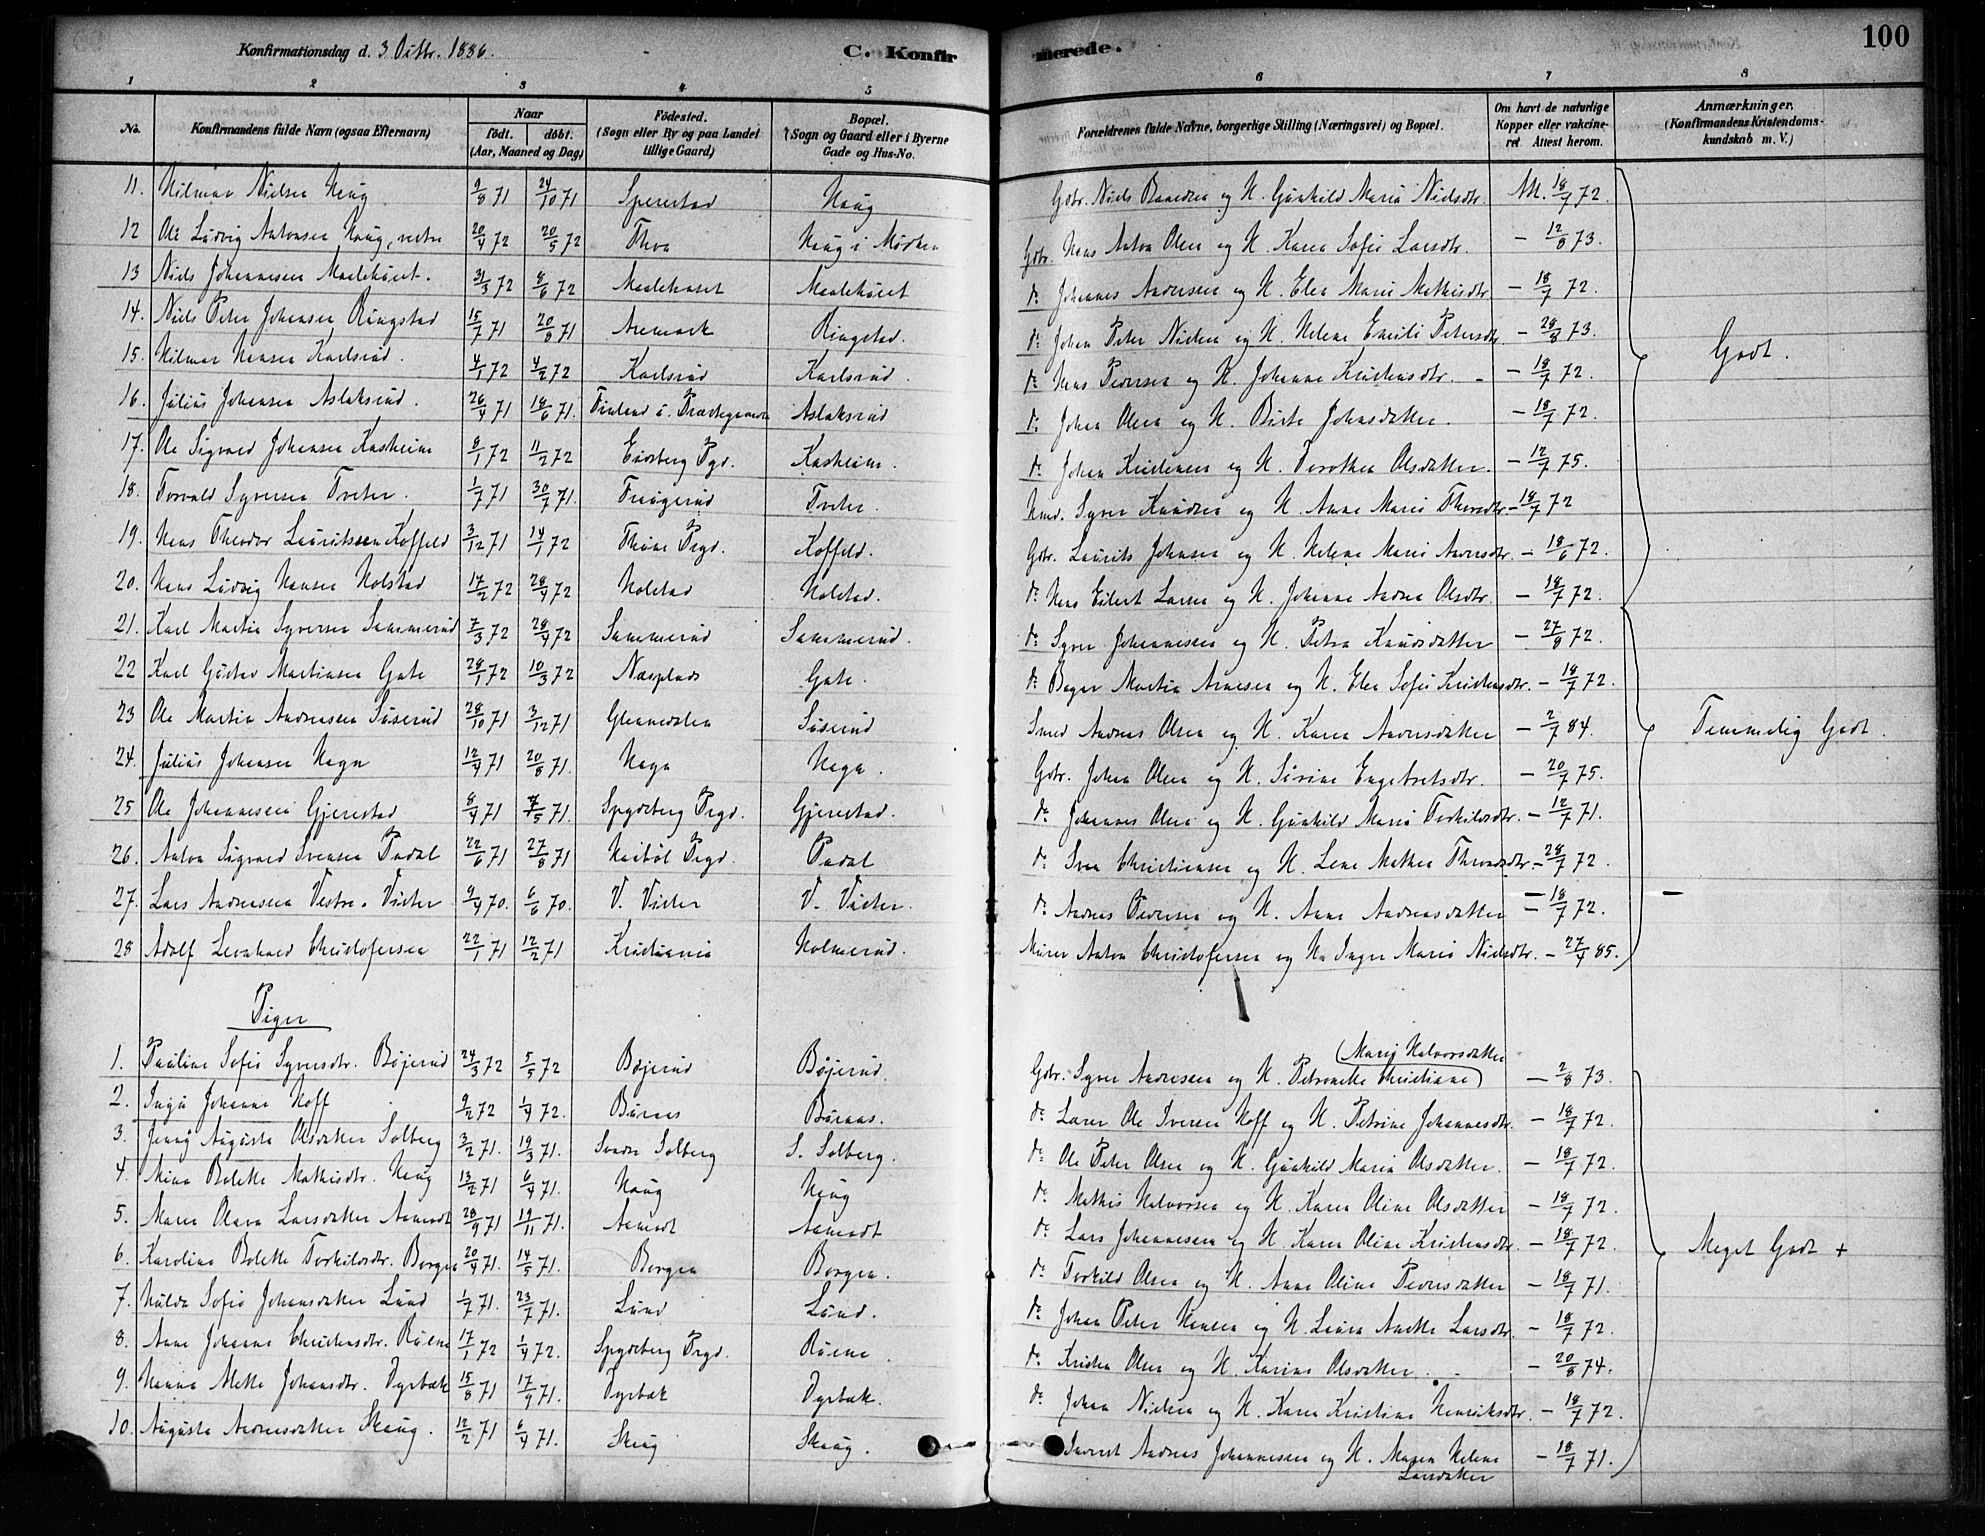 100
Konfirmationsdag d. 3 Octbr. 1886.
C. Konfirmerede.
1 2 3 4 5 6 7 8
No. Konfirmandens fulde Navn (ogsaa Efternavn) Naar født. døbt. (Aar, Maaned og Dag) Fødested. (Sogn eller By og paa Landet tillige Gaard) Bopæl. (Sogn og Gaard eller i Byerne Gade og Hus-No. Forældrenes fulde Navne, borgerlige Stilling (Næringsvei) og Bopæl. Om havt de naturlige Kopper eller vakcineret. Attest herom. Anmærkninger. (Konfirmandens Kristendomskundskab m. V.)
11. Hilmar Nielsen Haug 9/8 71 24/10 71 Sperestad Haug Gbr. Niels og H. Gunhild Maria Nielsdtr. Att. 18/7 72.
12 Ole Ludvig Antonsen Haug, vestre 20/4 72 20/5 72 Thon Haug i Gbr. Hans Anton Olsen og H. Karen Sofie Larsdtr. – 12/8 73.
13 Niels Johannesen 31/3 72 8/6 72 do Johannes Andersen og H. Elen Marie Mathisdtr – 18/7 72.
14. Niels Peter Johansen Ringstad 15/7 71 20/8 71 Aremark Ringstad. do Johan Peter Nielsen og H. Helene Emilie Petersdtr – 28/8 73.
15. Hilmar Hansen Karlsrud. 4/1 72 4/2 72 Karlsrud Karlsrud. do Hans Pedersen og H. Johanne Kristensdtr. – 18/7 72.
16. Julius Johansen Aslaksrud. 26/4 71 18/6 71. Aslaksrud do Johan Olsen og H. Berte Johnsdatter. – 18/7 72.
17. Ole Sigvard Johansen Kasheim 8/1 72 11/2 72 Eidsberg Pgd. Kasheim. do Johan Kristensen og H. Dorothea Olsdatter. – 12/7 75.
18. Torvald Syversen Tveter. 1/7 71 30/7 71. Tveter. Syver Knudsen og H. Anne Marie – 18/7 72
19. Hans Theodor Lauritssen Koffeld 3/12 71 14/1 72 Prgd. Koffeld. Gbr. Laurits Johnsen og H. Helene Marie Andersdtr. – 18/6 72.
20. Hans Ludvig Hansen Holstad 17/2 72 28/4 72 Holstad Holstad. do Hans Eilert Larsen og H. Johanne Andrea Olsdtr. – 18/7 72.
21. Karl Martin Syversen Sammerud 7/3 72 28/4 72 Sammerud Sammerud. do Syver Johannesen og H. Petra Knudsdatter – 27/8 72.
22 Karl Gustav Martinsen Gate 28/1 72 10/3 72 Næsplads Gate. do Bager Martin Arnesen og H. Elen Sofie Kristensdtr. – 18/7 72.
23 Ole Martin Andreassen Suserud 28/10 71 3/12 71 Suserud Smed Andreas Olsen og H. Karen Andersdatter – 2/7 84.
24. Julius Johansen Haga 12/4 71 20/8 71. Haga Haga. Gbr. Johan Olsen og H. Sirine Engebretsdtr. – 20/7 75.
25 Ole Johannesen Gjerestad 8/4 71 7/5 71. Spydeberg Prgd. Gjerestad. do Johannes Olsen og H. Gunhild Marie Torkildsdtr. – 12/7 71.
26. Anton Sigvard Svensen Padal 22/6 71 27/8 71 Haabøl Prgd. Padal do Sven Christiansen og H. Lene Mathea – 28/7 72.
27. Lars Andreassen Vestre. Vister 9/4 70. 6/6 70. V. Vister V. Vister. do Andreas Pedersen og H. Anne Andreasdatter – 18/7 72. –
28 Adolf Leonhard Christofersen 22/1 71 12/2 71 Kristiania Holmerud. Murer Anton Christofersen og H. Inger Marie Nielsdtr. – 27/4 85.
Godt.
Temmelig Godt.
Piger
1. Pauline Sofie Syversdtr. Bøjerud 24/3 72 5/5 72 Bøjerud Bøjerud. Gbr. Syver Andersen og H. Petronelle Christiane (Marie Halvorsdatter) – 2/8 73.
2. Inga Johanne Hoff 9/2 72 1/4 72. do Lærer Ole Iversen Hoff og H. Petrine Johannesdtr. – 18/7 72.
3. Jenny Augusta Olsdatter Solberg 3/2 71. 19/3 71. Søndre Solberg S. Solberg. do Ole Peter Olsen og H. Gunhild Maria Olsdatter. – 18/7 72.
4. Mina Bolette Mathisdtr. Haug 13/2 71 6/4 71. Haug Haug do Mathis Halvorsen og H. Karen Oline Olsdatter – 18/7 72.
5. Maren Olava Larsdatter Aamodt 28/9 71 19/11 71. Aamodt Aamodt do Lars Johannesen og H. Karen Oline Kristensdtr. – 18/7 72.
6. Karoline Bolette Torkildsdtr. Borgen 20/4 71. 14/5 71. Borgen Borgen. do Torkild Olsen og H. Anne Oline Pedersdatter – 18/7 71.
7. Hulda Sofie Johansdatter Lund 1/7 71. 23/7 71. Lund Lund. do Johan Peter Hansen og H. Laura Anette Larsdtr. – 18/7 72.
8. Anne Johanne Christensdtr. 17/1 72 1/4 72. Spydeberg Prgd. do Kristen Olsen og H. Karine Olsdatter. – 20/8 74.
9. Hanna Mette Johansdtr. Dyrbæk 15/8 71 17/9 71. Dyrbæk Dyrbæk. do Johan Nielsen og H. Karen Kristine Henriksdtr. – 18/7 72.
10. Augusta Andreasdatter Skaug. 12/2 71 6/4 71. Skaug Skaug. Andreas Johannessen og H. Maren Helene Larsdatter – 18/7 71.
Meget Godt +